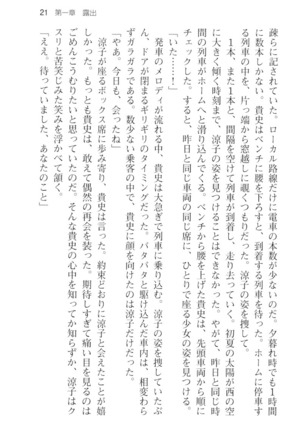 21　第一章　露出
疎らに記されていた。ローカル路線だけに電車の本数が少ないのだ。夕暮れ時でも１時間
に数本しかない。貴史はベンチに腰を下ろすと、到着する列車を待った。ホームに停車す
る列車の中を、片っ端から窓越しに覗くつもりだった。涼子の姿を捜して。
１本、また１本と、間隔を空けて列車が到着し、走り去っていく。初夏の太陽が西の空
に大きく傾く時刻まで、涼子の姿を見つけることはできなかった。やがて、昨日と同じ時
間の列車がホームへと滑り込んでくる。ベンチから腰を上げた貴史は、先頭車両から順に
チェックした。すると、昨日と同じ車両の同じ席に、ひとりで座る少女の姿を見つける。
「いた……」
発車のメロディが流れる中、貴史は大急ぎで列車に乗り込む。涼子の姿を捜していたぶ
ん、ドアが閉まるギリギリのタイミングだった。バタバタと駆け込んだ車内は、相変わら
ずガラガラである。数少ない乗客の中で、貴史に顔を向けたのは涼子だけだった。
「やあ。今日も、会ったね」
涼子が座るボックス席に歩み寄り、貴史は言った。約束どおりに涼子がいたことが、嬉
しかった。もっとも貴史は、敢えて偶然の再会を装った。期待しすぎて痛い目を見るのは
ごめんこうむりたいと思っていたのだ。そんな貴史の心中を知ってか知らずか、涼子はク
スリと苦笑じみた笑みを浮かべて頷く。
「ええ。待っていました、あなたのこと」